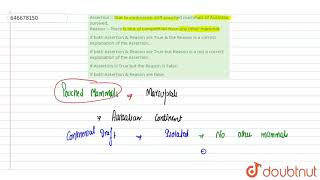 646678150
Assertion :- Due to continental drift pouched mammals of Australia survived.
Reason :- There is lack of competition from any other mammal.
If both Assertion & Reason are True & the Reason is a correct explanation of the Assertion.
If both Assertion & Reason are True but Reason is a not a correct explanation of the Assertion.
If Assertion is True but the Reason is False.
If both Assertion & Reason are false.
Pouched Mammals → Marsupials
→ Australian Continent
Continental Drift → Isolated → No other mammals
doubtnut